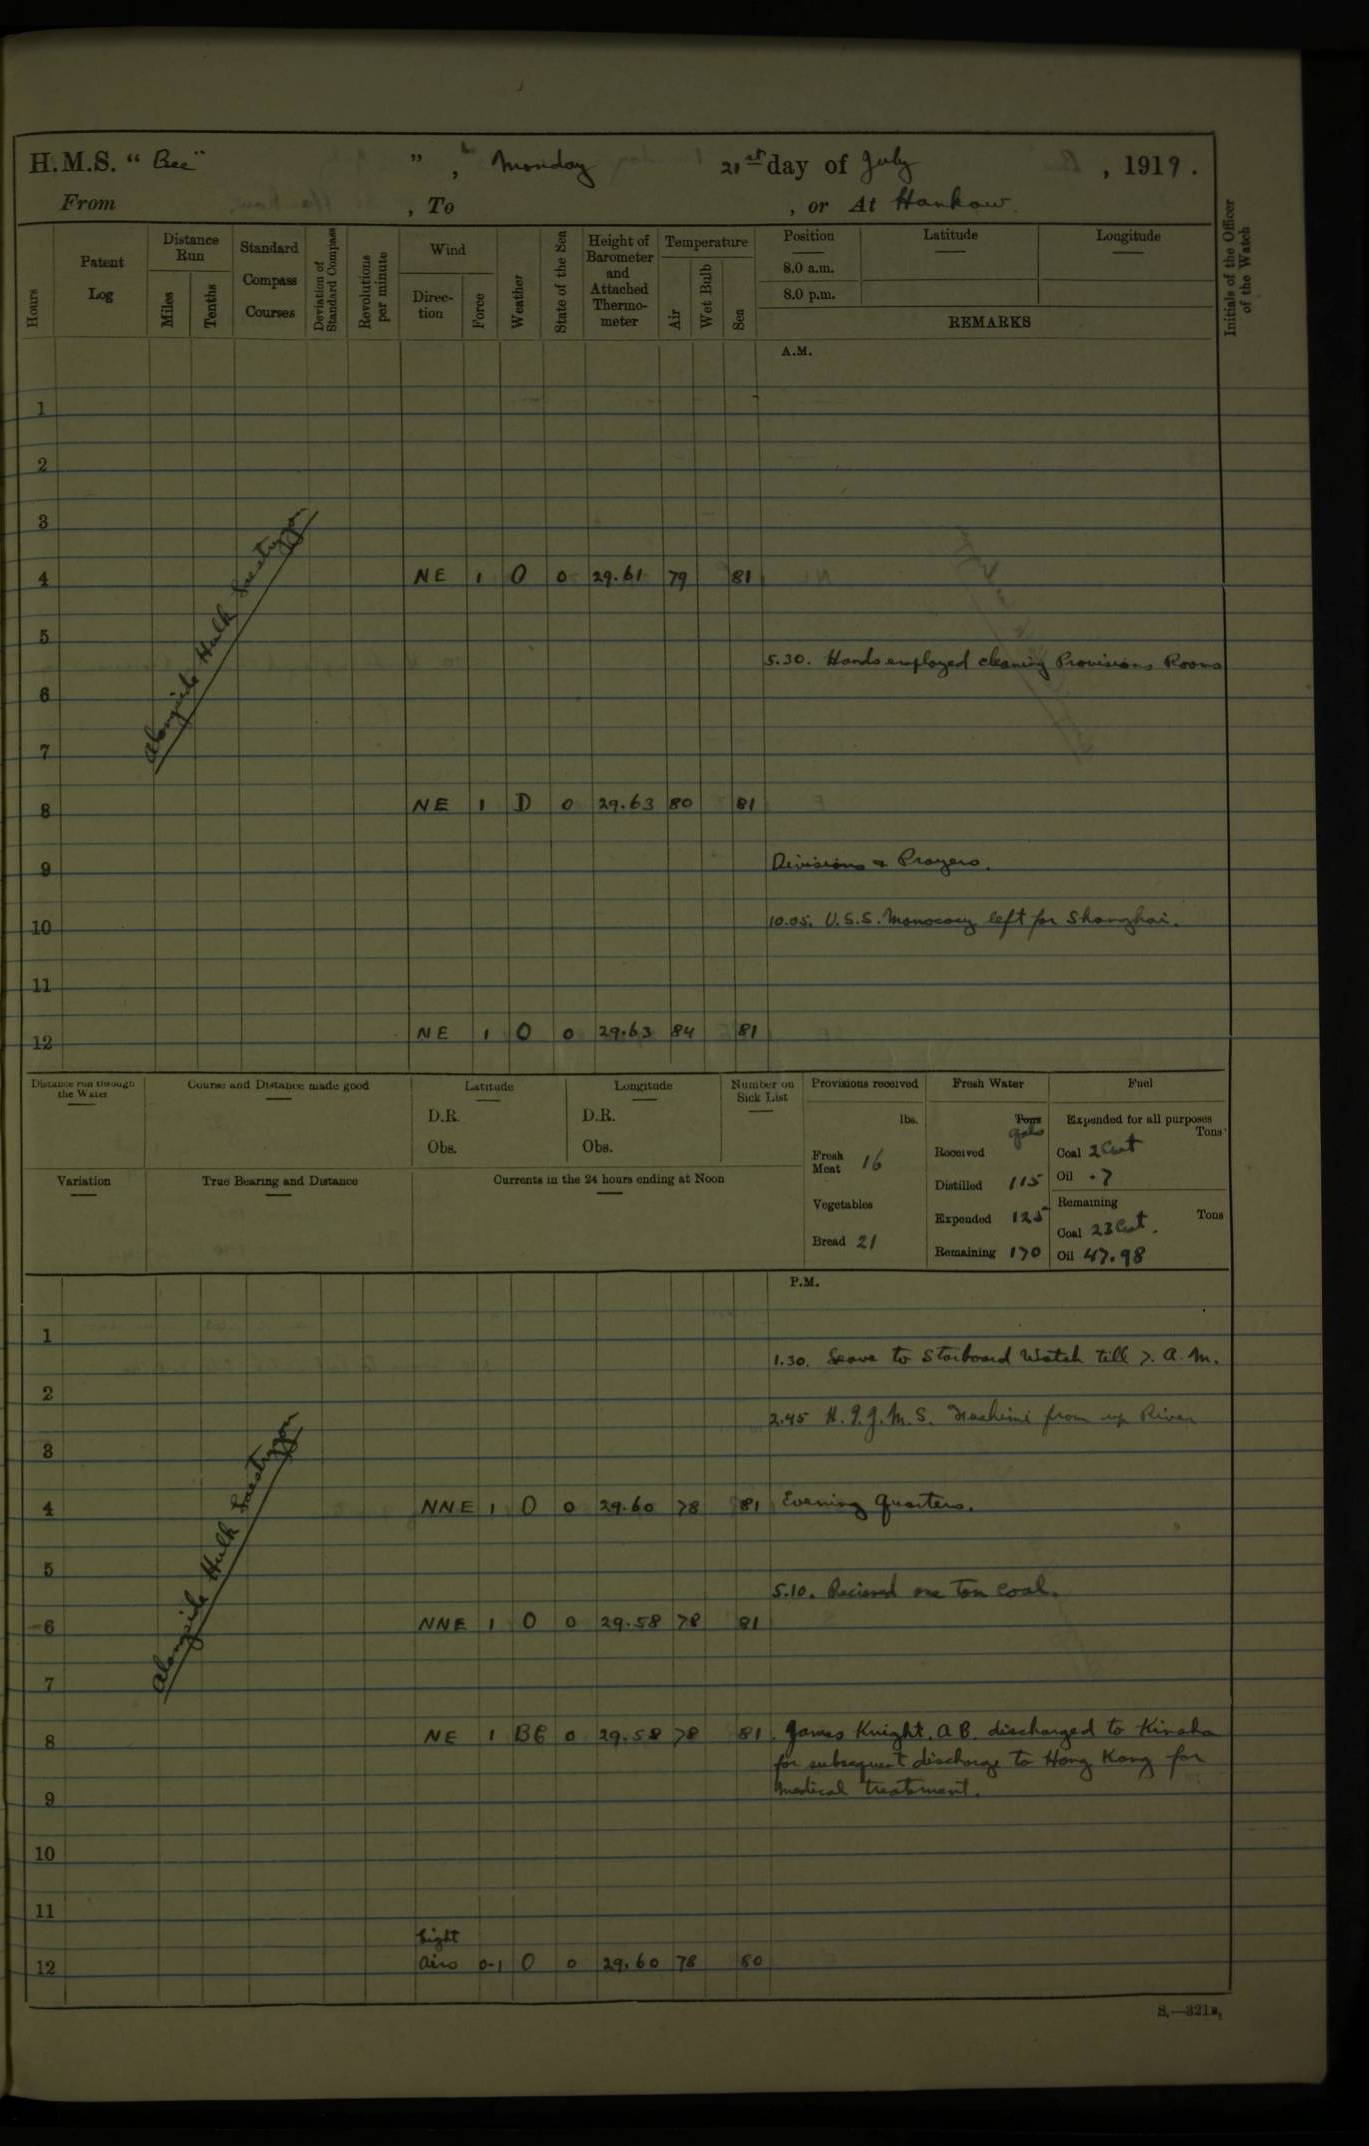 H.M.S. “ Bee” ” , Monday 21st day of July , 1919.
From , To , or At Hankow.
Hours
Patent Log
Distance Run
Miles
Tenths
Standard Compass Courses
Deviation of Standard Compass
Revolutions per minute
Wind
Direc-tion
Force
Weather
State of the Sea
Height of Barometer and Attached Thermo-meter
Temperature
Air
Wet Bulb
Sea
Position
8.0 a.m.
8.0 p.m.
Latitude
Longitude
REMARKS
Initials of the Officer of the Watch
A.M.
1
2
3
Alongside Hulk
4 NE 1 O 0 29.61 79 81
5
5.30. Hands employed cleaning Provisions Rooms
6
7
8 NE 1 D 0 29.63 80 81
9 Divisions & Prayers.
10 10.05. U.S.S. Monocacy left for Shanghai.
11
12 NE 1 O 0 29.63 84 81
Distance run through the Water
Course and Distance made good
Latitude
D.R.
Obs.
Longitude
D.R.
Obs.
Number on Sick List
Provisions received
lbs.
Fresh Meat 16
Vegetables
Bread 21
Fresh Water
Tons
gals
Received
Distilled 115
Expended 125
Remaining 170
Fuel
Expended for all purposes
Tons
Coal 2 Cwt
Oil .7
Remaining
Tons
Coal 23 Cwt.
Oil 47.98
Variation
True Bearing and Distance
Currents in the 24 hours ending at Noon
P.M.
1
1.30. Leave to Starboard Watch till 7. A.M.
2
2.45 H.I.J.M.S. from up River
3
Alongside Hulk
4 NNE 1 O 0 29.60 78 81 Evening Quarters.
5
5.10. Recieved one Ton Coal.
6 NNE 1 O 0 29.58 78 81
7
8 NE 1 BC 0 29.58 78 81. James Knight. AB. discharged to Kinsha
for subsequent discharge to Hong Kong for
medical treatment.
9
10
11
Light
12 Airs 0-1 O 0 29.60 78 80
S.—321a.